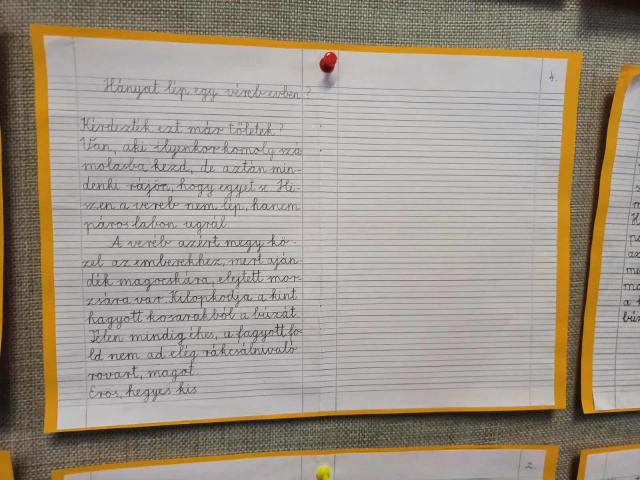 4.
Hányat lép egy veréb évben?
Kérdezték ezt már tőletek?
Van, aki ilyenkor komoly szá
molásba kezd, de aztán min-
denki rájön, hogy egyet s. Hi-
szen a veréb nem lép, hanem
páros lábon ugrál.
A veréb azért megy kö-
zel az emberekhez, mert aján
dék magocskára, elejtett mor-
zsára vár. Kilopkodja a kint
hagyott kosarakból a búzát.
Télen mindig éhes, a fagyott fö-
ld nem ad elég rákcsálnivaló
rovart, magot.
Erős, hegyes kis
2.